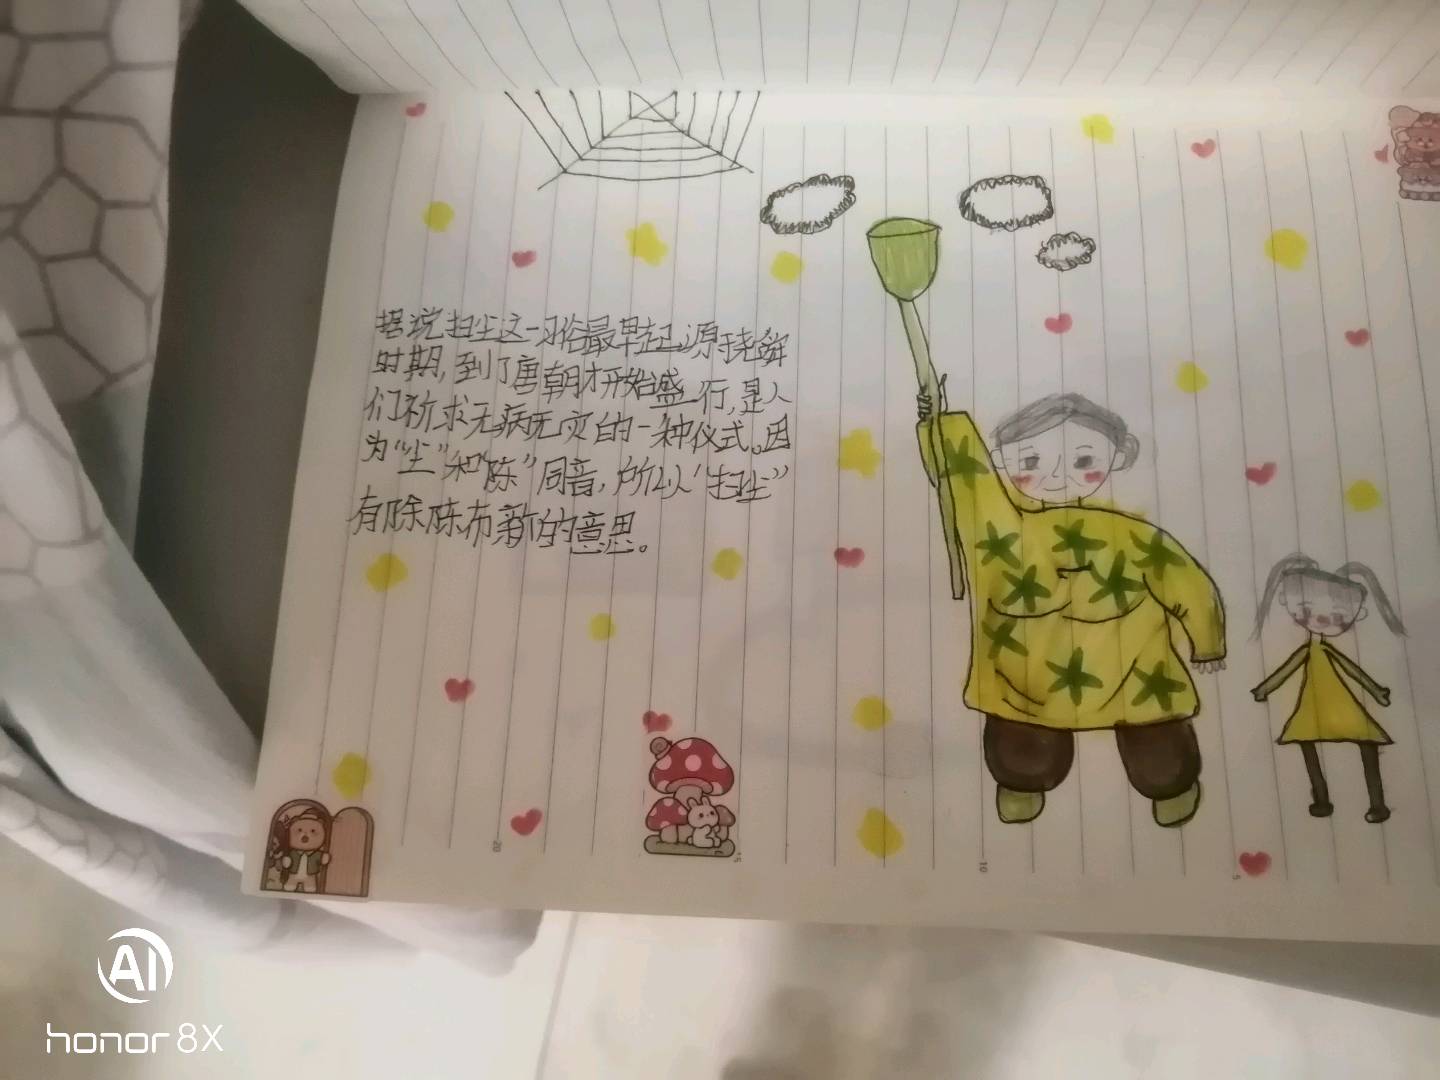 据说扫尘这一习俗最早起源于尧舜
时期,到了唐朝才开始盛行,是人
们祈求无病无灾的一种仪式。因
为“尘”和“陈”同音,所以“扫尘”
有除陈布新的意思。
20
15
10
5
AI
honor 8X